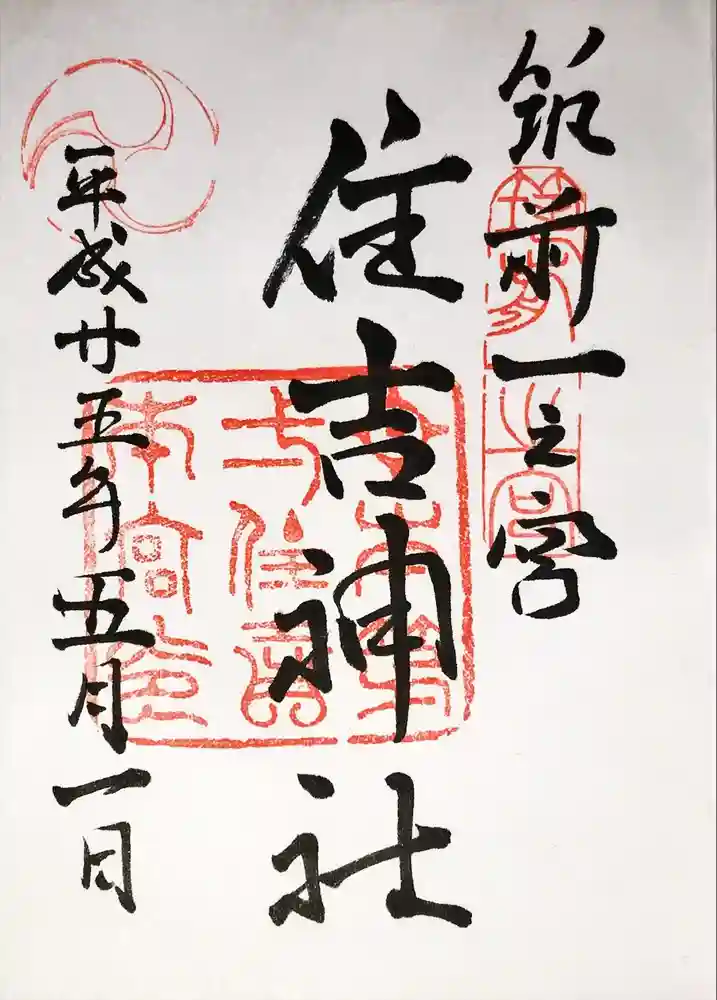 筑前一之宮
住吉神社
平成廿五年五月一日